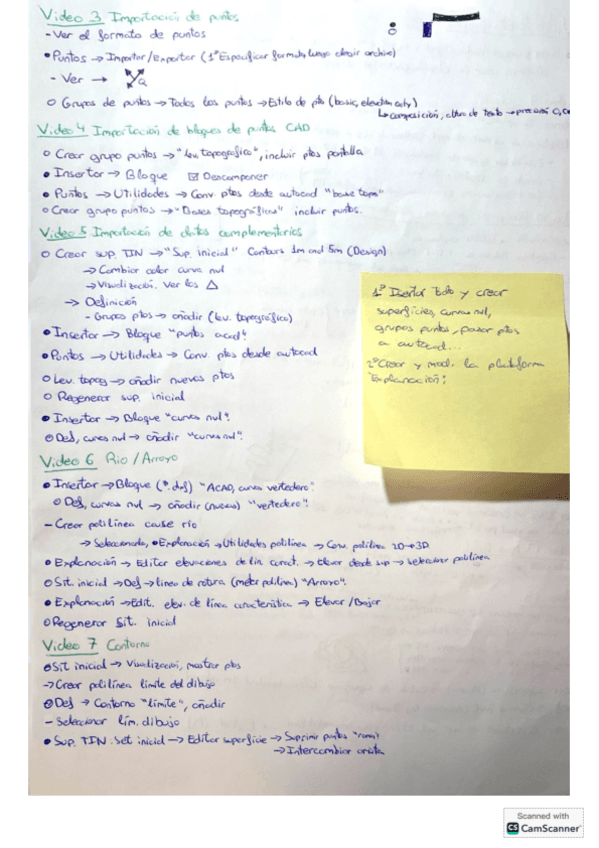 Video 3 Importación de puntos
- Ver el formato de puntos
• Puntos → Importar/Exportar (1º Especificar formato, luego elegir archivo)
- Ver →
o Grupos de puntos → Todos los puntos → Estilo de pto (basic, elevation only)
↳ composición, altura de texto → precisión
Video 4 Importación de bloques de puntos CAD
o Crear grupo puntos → "lev. topográfico", incluir ptos pantalla
• Insertar → Bloque ☑ Descomponer
• Puntos → Utilidades → Conv. ptos desde autocad "base topo"
o Crear grupo puntos → "Bases topográficas" incluir puntos.
Video 5 Importación de datos complementarios
o Crear sup. TIN → "Sup. inicial" Contours 1m and 5m (Design)
→ Cambiar color curva nvl
→ Visualización. Ver los △
→ Definición
- Grupos ptos → añadir (lev. topográfico)
• Insertar → Bloque "puntos acad"
• Puntos → Utilidades → Conv. ptos desde autocad
o Lev. topog → añadir nuevos ptos
o Regenerar sup. inicial
• Insertar → Bloque "curvas nvl".
o Def, curvas nvl → añadir "curvas nvl".
Video 6 Rio / Arroyo
• Insertar → Bloque "ACAD, curva vertedero".
o Def, curvas nvl → añadir (nuevas) "vertedero".
- Crear polilínea cause rio
→ Seleccionada, • Explanación → Utilidades polilínea → Conv. polilínea 2D → 3D.
• Explanación → Editar elevaciones de lín. caract. → Elevar desde sup → seleccionar polilínea
o Sit. inicial → Def → linea de rotura (meter polilínea) "Arroyo".
• Explanación → Edit. elev. de línea característica → Elevar / Bajar
o Regenerar Sit. inicial
Video 7 Contorno
o Sit inicial → Visualización, mostrar ptos
→ Crear polilínea límite del dibujo
o Def → Contorno "límite", añadir
- Seleccionar lím. dibujo
• Sup. TIN: Sit inicial → Editar superficie → Suprimir puntos
→ Intercambiar arista
1º Insertar todo y crear
superficies, curvas nvl,
grupos puntos, pasar ptos
a autocad...
2º Crear y mod. la plataforma
Explanación!
Scanned with
CS CamScanner